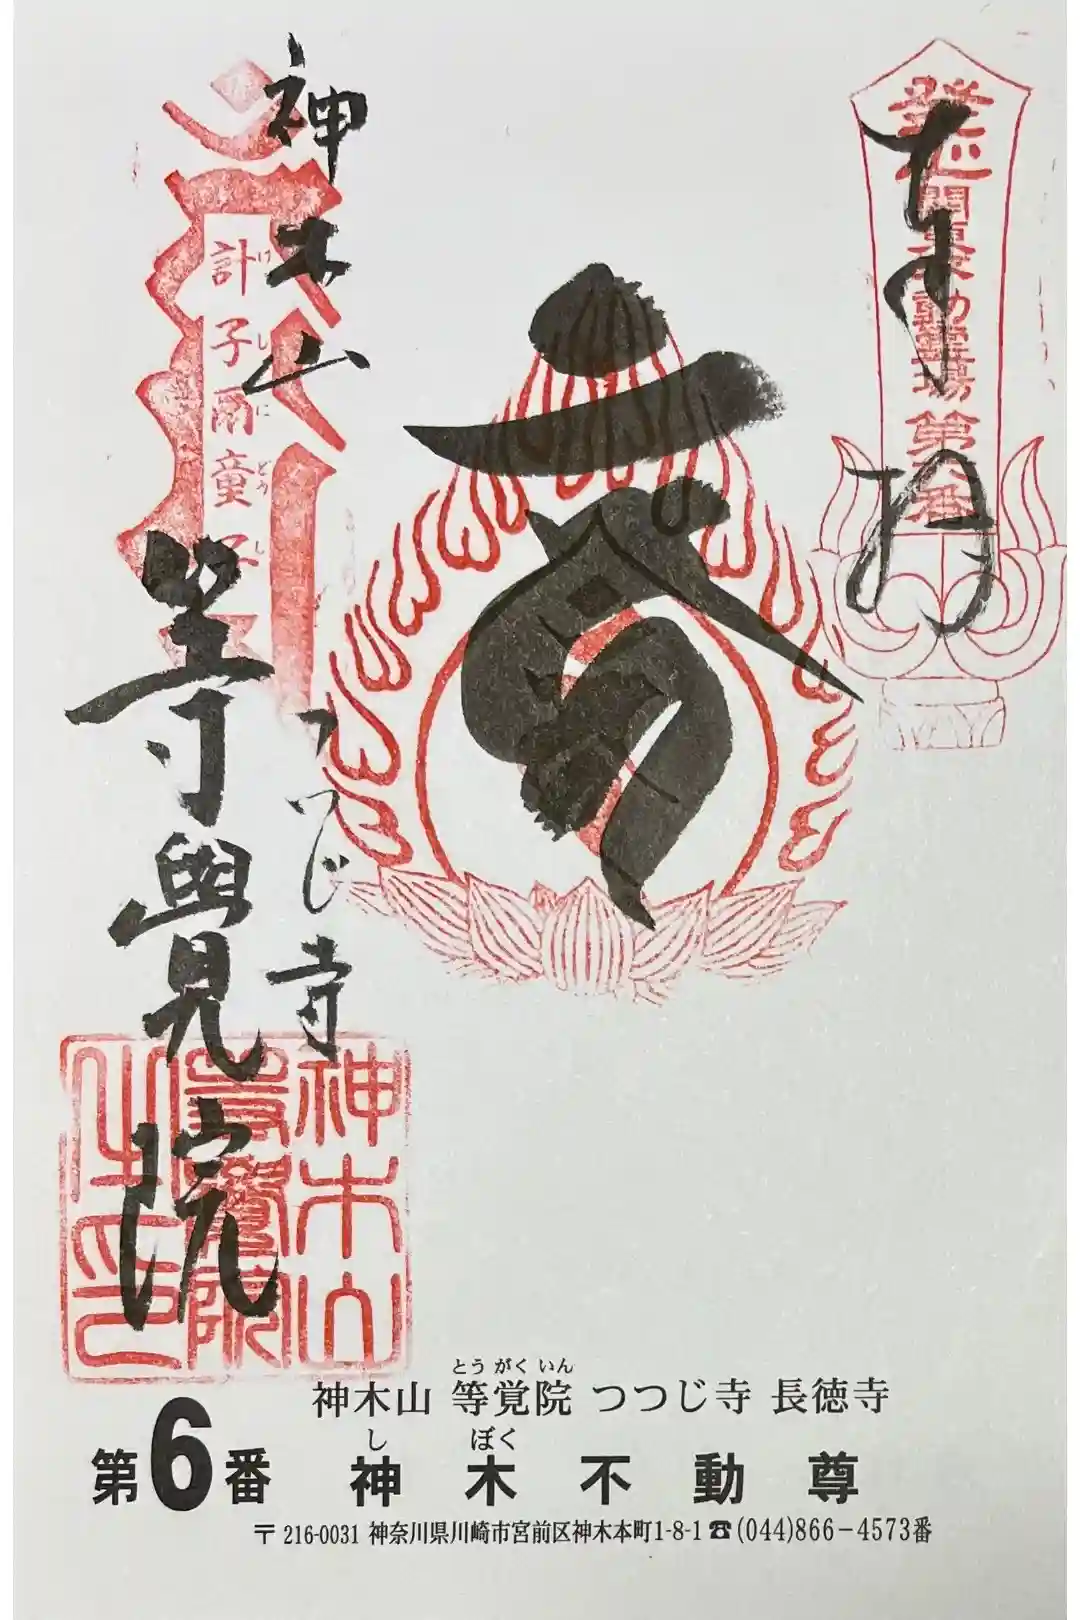 奉拝
發心
関東不動霊場第六番
神木山
計子爾童子
けしにどうじ
つつじ寺
等覺院
神木山
等覺院
之印
神木山 等覚院 つつじ寺 長徳寺
とうがくいん
第6番 神木不動尊
しぼく
〒216-0031 神奈川県川崎市宮前区神木本町1-8-1☎(044)866-4573番